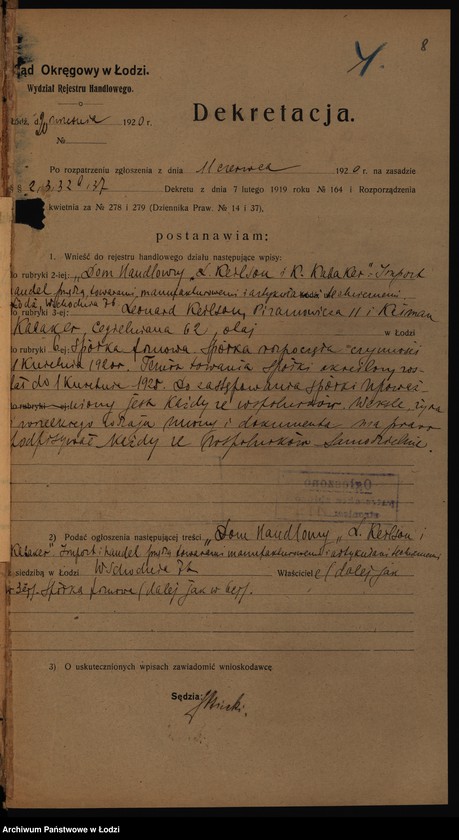 8
ąd Okręgowy w Łodzi.
Wydział Rejestru Handlowego.
Dekretacja.
1920 r.
№
Po rozpatrzeniu zgłoszenia z dnia 11 czerwca 1920 r. na zasadzie
Dekretu z dnia 7 lutego 1919 roku № 164 i Rozporządzenia
kwietnia za № 278 i 279 (Dziennika Praw. № 14 i 37),
postanawiam:
1. Wnieść do rejestru handlowego działu następujące wpisy:
do rubryki 2-iej: „Dom Handlowy „L. Kerlson i R. Kabaker": Import
handel towarami manufakturowemi i artykułami
Łódź, Wschodnia 76
do rubryki 3-iej: Leonard Kerlson, Piramowicza 11 i
Kabaker, Cegielniana 62, obaj w Łodzi
do rubryki 6ej Spółka firmowa. Spółka rozpoczęła czynności
1 kwietnia 1920 r. Termin trwania spółki określony
lat do 1 kwietnia 192 r. Do zastępowania spółki upoważ-
niony jest każdy ze wspólników. Weksle,
wszelkiego rodzaju umowy i dokumenta ma prawo
podpisywać każdy ze wspólników samodzielnie.
Ogłoszono
2) Podać ogłoszenia następującej treści „Dom Handlowy „L. Kerlson i
Kabaker". Import i handel towarami manufakturowemi i artykułami
z siedzibą w Łodzi Wschodnia 76 Właściciele (dalej jak
w 3ej). Spółka firmowa (dalej jak w 6ej).
3) O uskutecznionych wpisach zawiadomić wnioskodawcę.
Sędzia:
Archiwum Państwowe w Łodzi